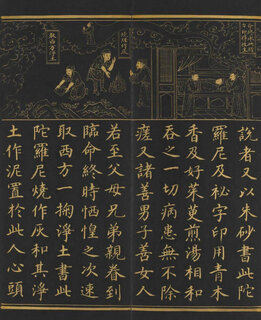 說者又以朱砂書此陀
羅尼及秘字印用青木
香及好茱萸煎湯相和
吞之一切病患無不除
瘥又諸善男子善女人
取西方淨土
若至父母兄弟親眷到
臨命終時恓惶之次速
取西方一掬淨土書此
陀羅尼燒作灰和其淨
土作泥置於此人心頭